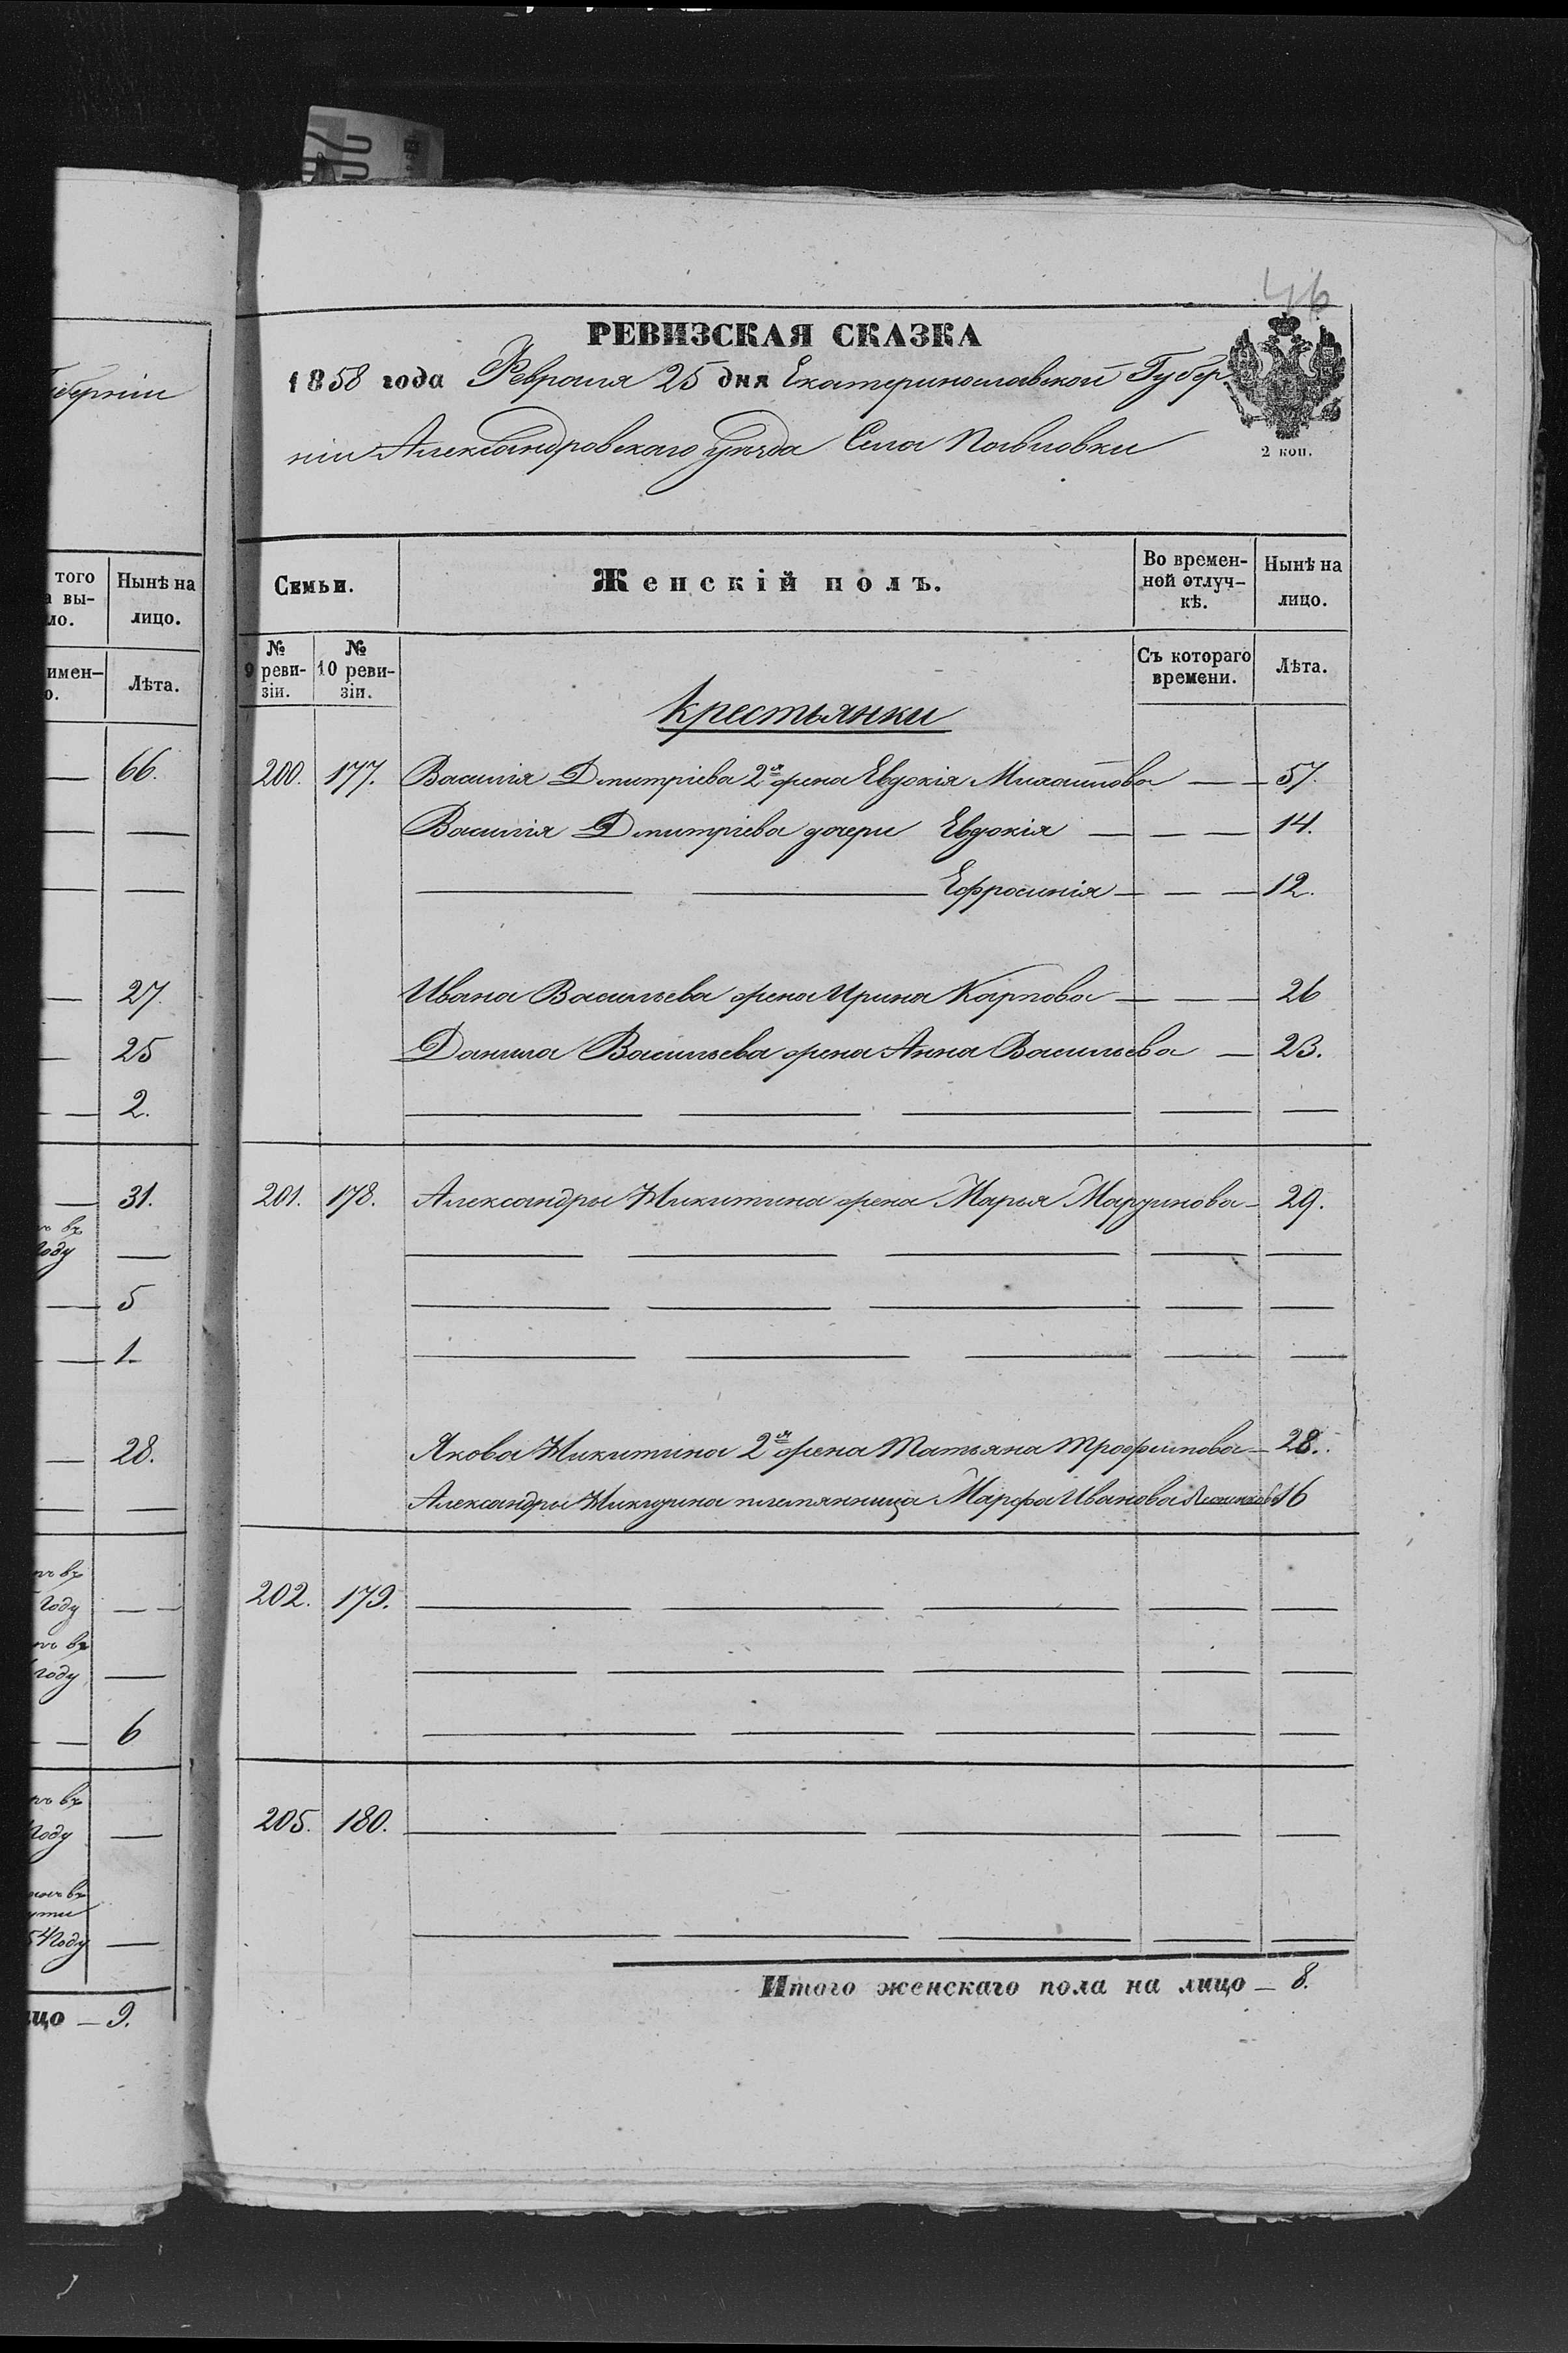 46
РЕВИЗСКАЯ СКАЗКА
1858 года Февраля 25 дня Екатеринославской Губер
ніи Александровскаго уѣзда Села Павловки
2 коп.
Семьи.
Женскій полъ.
Во времен-
ной отлуч-
кѣ.
Нынѣ на
лицо.
№
9 реви-
зіи.
№
10 реви-
зіи.
Съ котораго
времени.
Лѣта.
Крестьянки
200. 177. Василія Дмитріева 2я жена Евдокія Михайлова — — 57.
Василія Дмитріева дочери Евдокія — — — 14.
— — Ефросинія — — — 12.
Ивана Васильева жена Ирина Карпова — — — 26
Данила Васильева жена Анна Васильева — 23.
— — — — —
201. 178. Александры Никитина жена Марья Мартинова — 29.
— — — — —
— — — — —
— — — — —
Якова Никитина 2я жена Татьяна Трофимова — 28.
Александры Никитина племянница Марфа Иванова 16
202. 179. — — — — —
— — — — —
— — — — —
205. 180. — — — — —
— — — — —
Итого женскаго пола на лицо — 8.
губерніи
того
вы-
ло.
Нынѣ на
лицо.
имен-
о.
Лѣта.
— 66.
— —
— —
— 27.
— 25
— 2.
— 31.
въ
году —
— 5
— 1.
— 28.
— —
въ
году —
въ
году —
— 6
въ
году —
въ
54 году —
цо — 9.